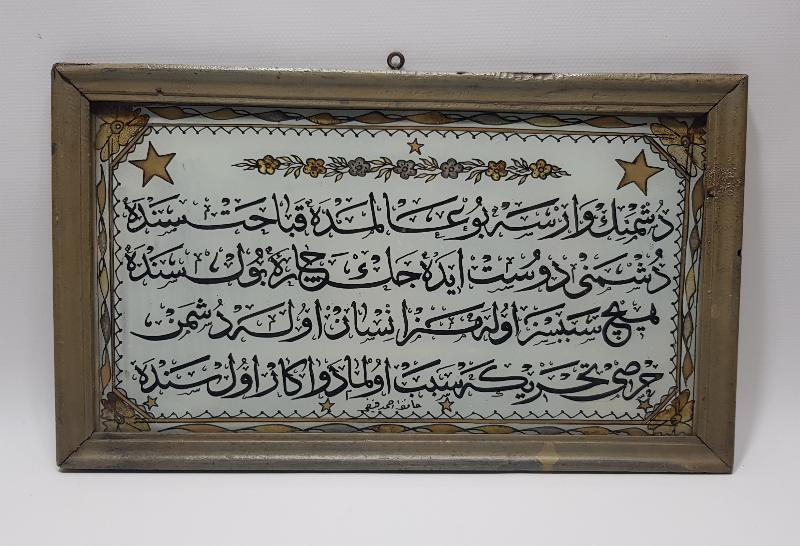 دشمنك وارسه بو عالمده قباحت سنده
دشمنى دوست ايده جك چاره بول سنده
هيچ سببسز اوله مز انسان اوله دشمن
حرصى تحريكه سبب اولما دواكار اول سنده
حافظ احمد